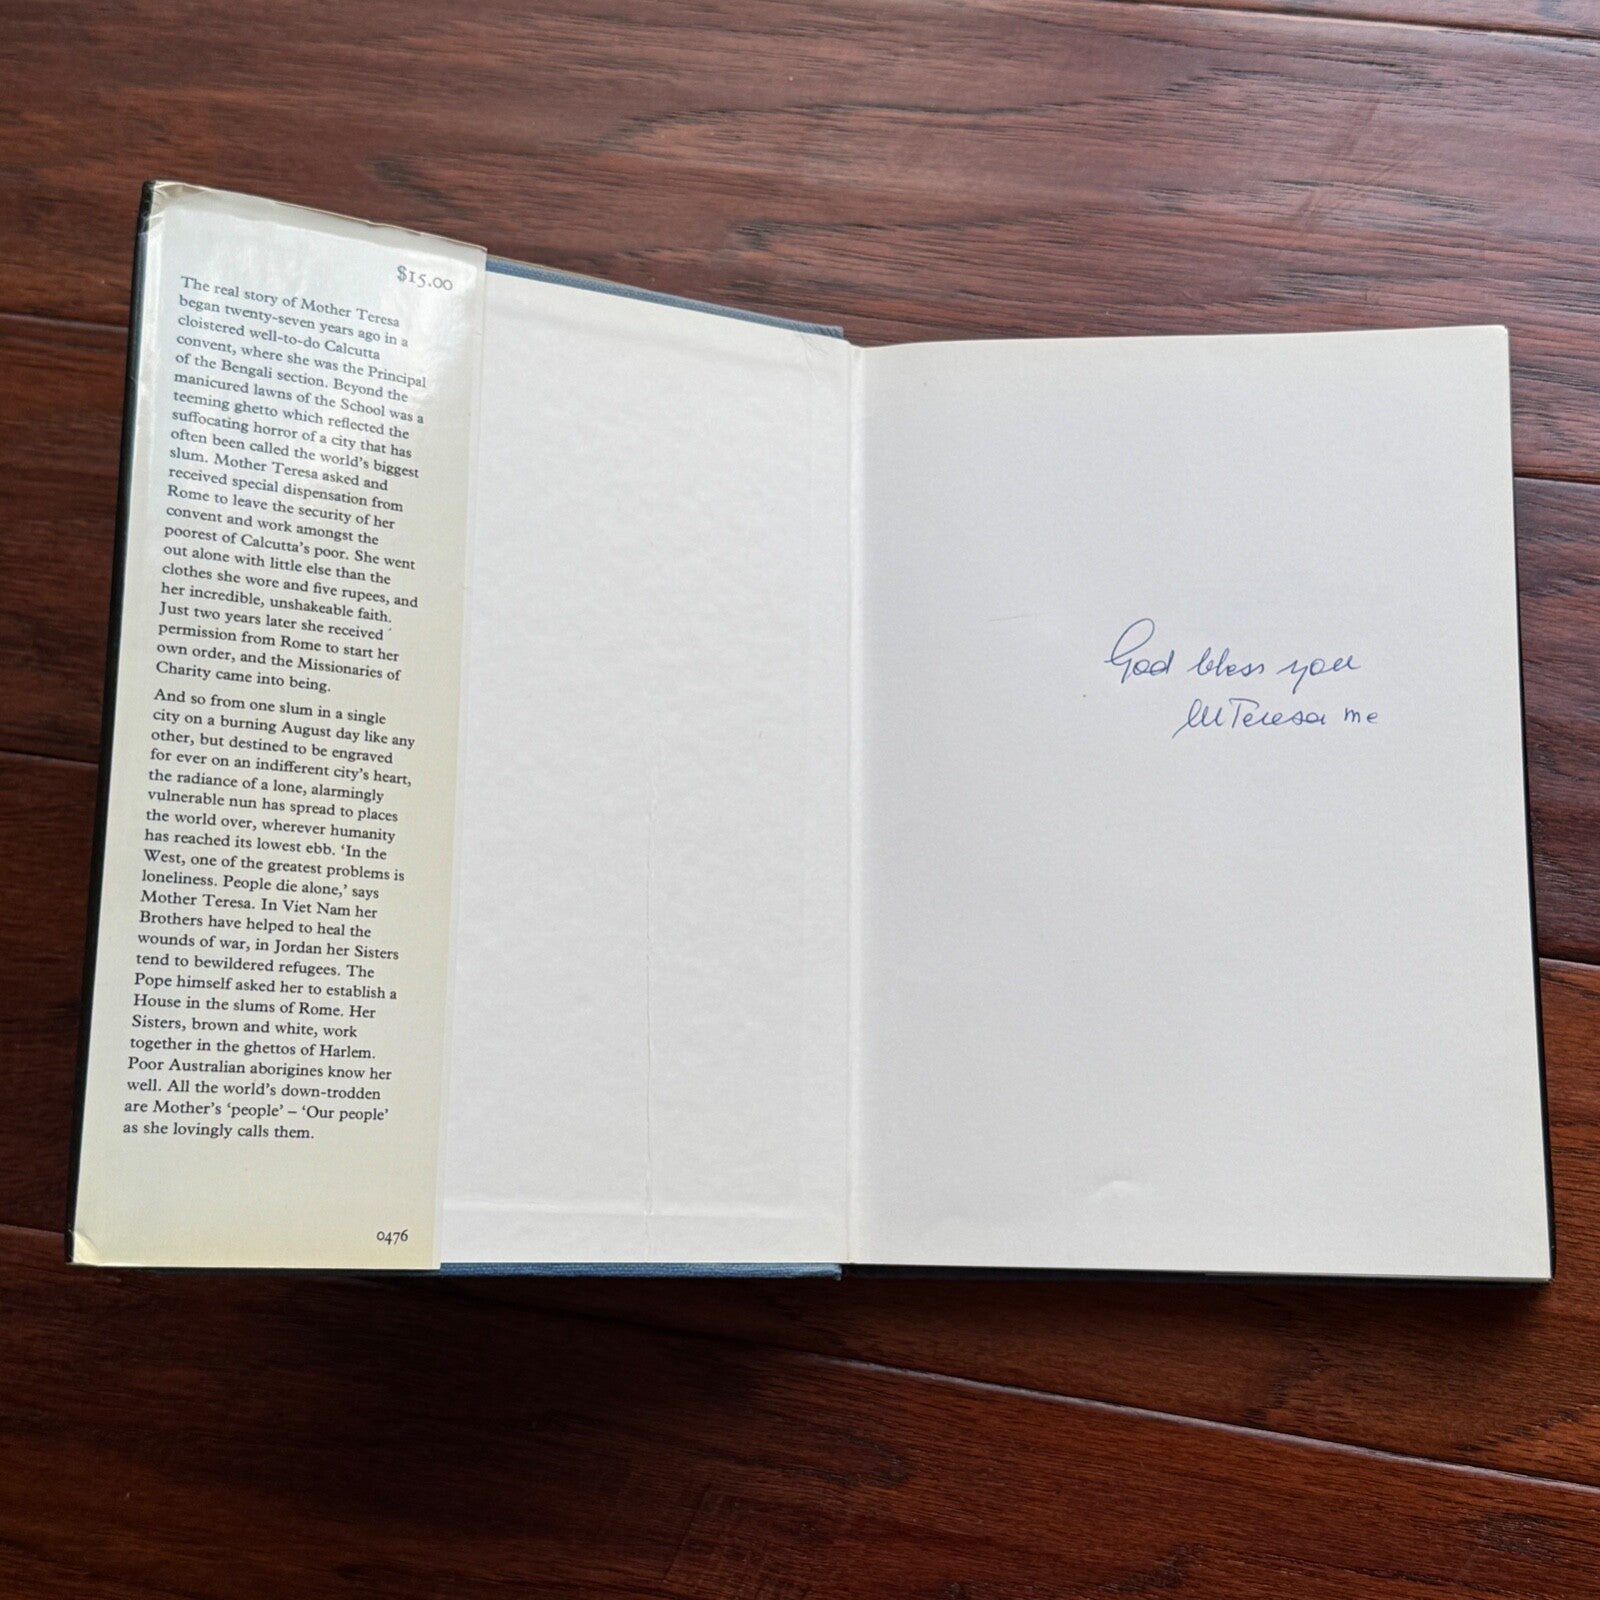 $15.00
The real story of Mother Teresa
began twenty-seven years ago in a
cloistered well-to-do Calcutta
convent, where she was the Principal
of the Bengali section. Beyond the
manicured lawns of the School was a
teeming ghetto which reflected the
suffocating horror of a city that has
often been called the world's biggest
slum. Mother Teresa asked and
received special dispensation from
Rome to leave the security of her
convent and work amongst the
poorest of Calcutta's poor. She went
out alone with little else than the
clothes she wore and five rupees, and
her incredible, unshakeable faith.
Just two years later she received
permission from Rome to start her
own order, and the Missionaries of
Charity came into being.
And so from one slum in a single
city on a burning August day like any
other, but destined to be engraved
for ever on an indifferent city's heart,
the radiance of a lone, alarmingly
vulnerable nun has spread to places
the world over, wherever humanity
has reached its lowest ebb. 'In the
West, one of the greatest problems is
loneliness. People die alone,' says
Mother Teresa. In Viet Nam her
Brothers have helped to heal the
wounds of war, in Jordan her Sisters
tend to bewildered refugees. The
Pope himself asked her to establish a
House in the slums of Rome. Her
Sisters, brown and white, work
together in the ghettos of Harlem.
Poor Australian aborigines know her
well. All the world's down-trodden
are Mother's 'people' – 'Our people'
as she lovingly calls them.
0476
God bless you
M Teresa mc